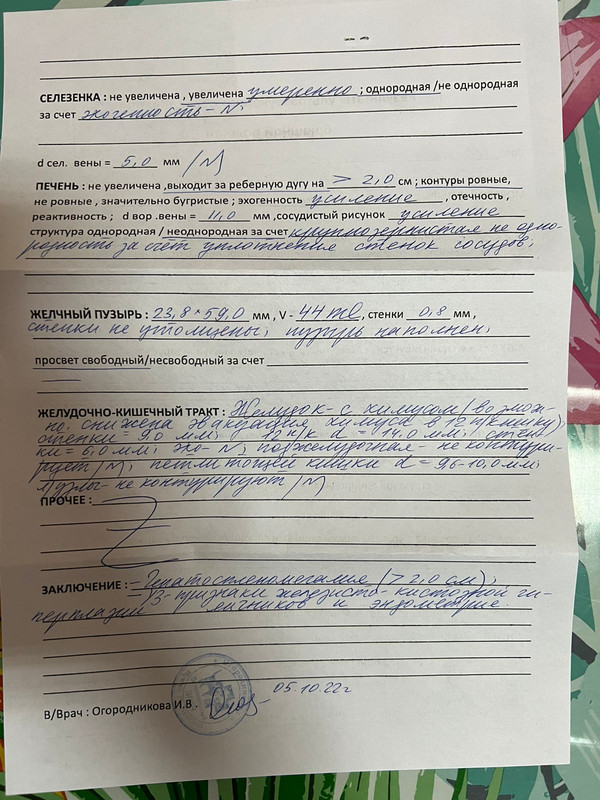 СЕЛЕЗЕНКА : не увеличена , увеличена умеренно ; однородная /не однородная
за счет эхогенность – N;
d сел. вены = 5,0 мм /N/
ПЕЧЕНЬ : не увеличена ,выходит за реберную дугу на > 2,0 см ; контуры ровные,
не ровные , значительно бугристые ; эхогенность усиление , отечность ,
реактивность ; d вор .вены = 11,0 мм ,сосудистый рисунок усиление
структура однородная / неоднородная за счет крупнозернистая не одно-
родность за счёт уплотнения стенок сосудов;
ЖЕЛЧНЫЙ ПУЗЫРЬ : 23,8 * 59,0 мм , V - 44 ml, стенки 0,8 мм ,
стенки не утолщены; пузырь наполнен;
просвет свободный/несвободный за счет
ЖЕЛУДОЧНО-КИШЕЧНЫЙ ТРАКТ : Желудок - с химусом /возмож-
но снижена эвакуация химуса в 12 п/кишку);
стенки = 9,0 мм; 12 п/к d = 14,0 мм; стен-
ки = 6,0 мм; эхо - N; поджелудочная - не контури-
рует /N/; петли тощей кишки d = 9,6-10,0 мм;
л/узлы - не контурируют /N/
ПРОЧЕЕ :
ЗАКЛЮЧЕНИЕ : – Гепатоспленомегалия (> 2,0 см);
– УЗ - признаки железисто-кистозной ги-
перплазии яичников и эндометрие.
05.10.22г
В/Врач : Огородникова И.В.